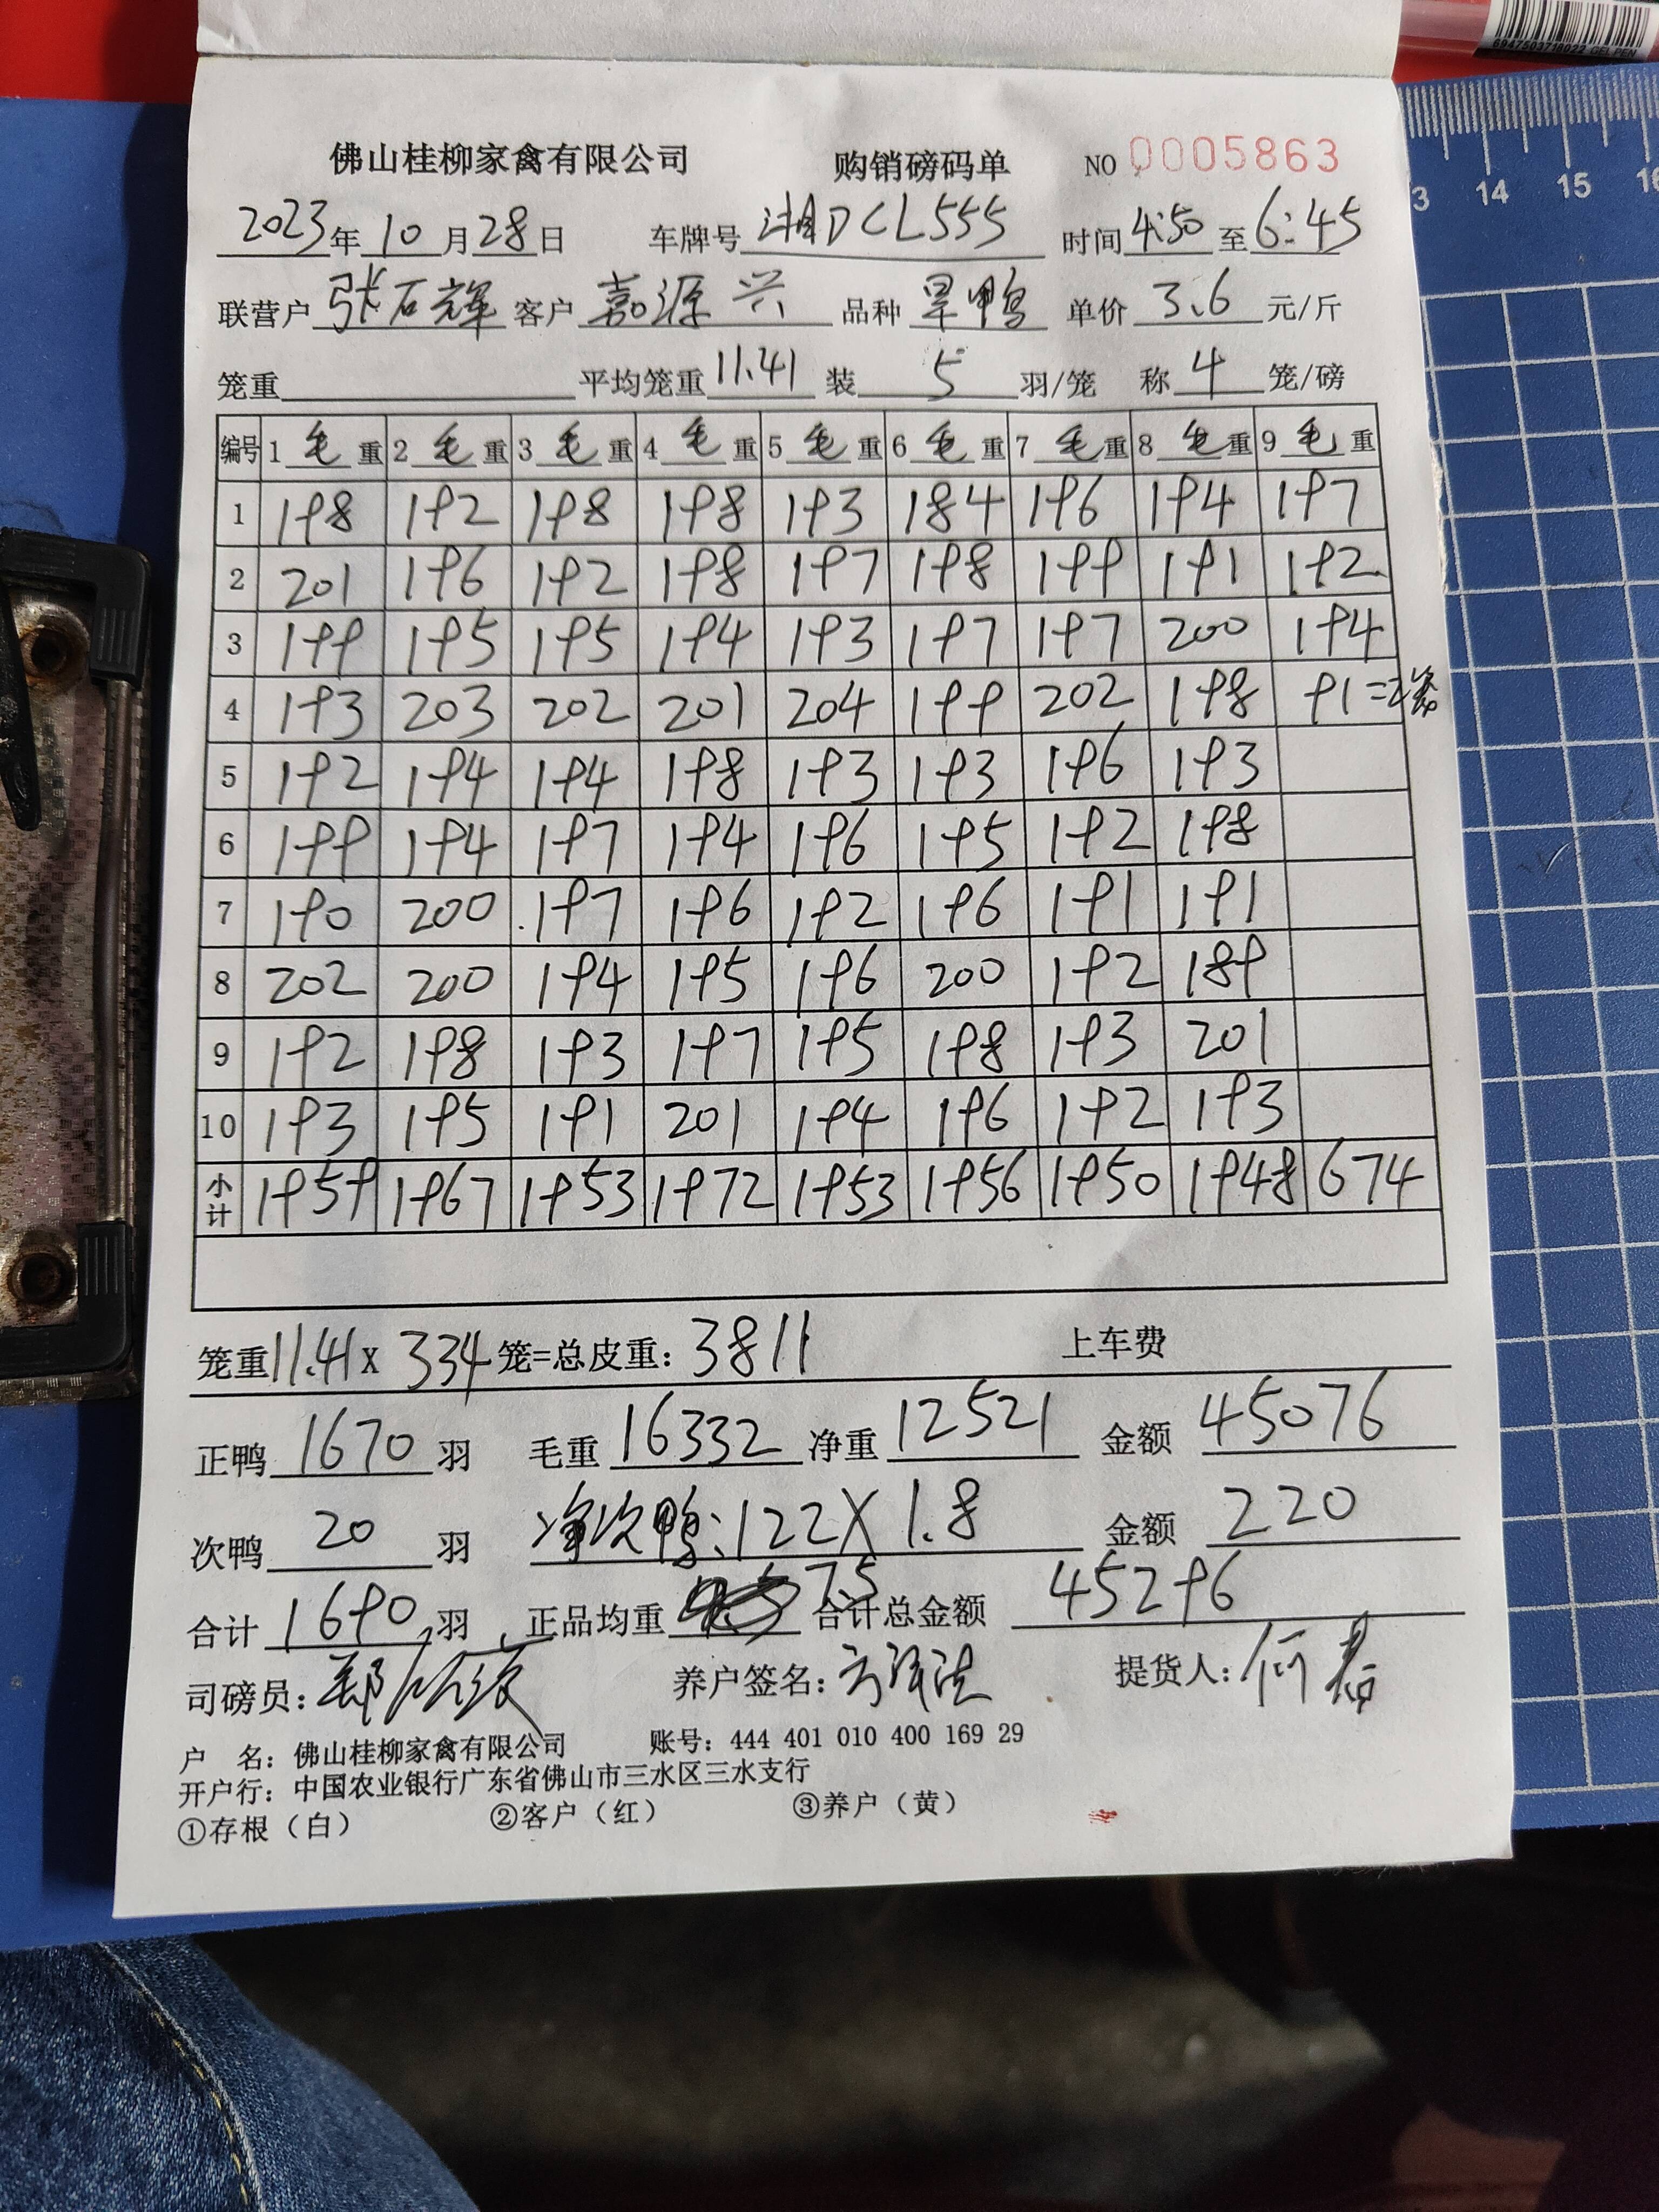 6947503716022 GEL PEN
3 14 15 16
佛山桂柳家禽有限公司 购销磅码单 NO 0005863
2023年10月28日 车牌号 湘DCL555 时间 4:50 至 6:45
联营户 张石辉 客户 嘉源兴 品种 旱鸭 单价 3.6 元/斤
笼重 平均笼重 11.41 装 5 羽/笼 称 4 笼/磅
编号 1 毛 重 2 毛 重 3 毛 重 4 毛 重 5 毛 重 6 毛 重 7 毛 重 8 毛 重 9 毛 重
1 198 192 198 198 193 184 196 194 197
2 201 196 192 198 197 198 199 191 192
3 199 195 195 194 193 197 197 200 194
4 193 203 202 201 204 199 202 198 91=2笼
5 192 194 194 198 193 193 196 193
6 199 194 197 194 196 195 192 198
7 190 200 197 196 192 196 191 191
8 202 200 194 195 196 200 192 189
9 192 198 193 197 195 198 193 201
10 193 195 191 201 194 196 192 193
小计 1959 1967 1953 1972 1953 1956 1950 1948 674
笼重 11.41 X 334 笼=总皮重: 3811 上车费
正鸭 1670 羽 毛重 16332 净重 12521 金额 45076
次鸭 20 羽 净次鸭:122X1.8 金额 220
合计 1690 羽 正品均重 7.5 合计总金额 45296
司磅员: 郑 养户签名: 提货人: 何
户 名: 佛山桂柳家禽有限公司 账号: 444 401 010 400 169 29
开户行: 中国农业银行广东省佛山市三水区三水支行
①存根（白） ②客户（红） ③养户（黄）